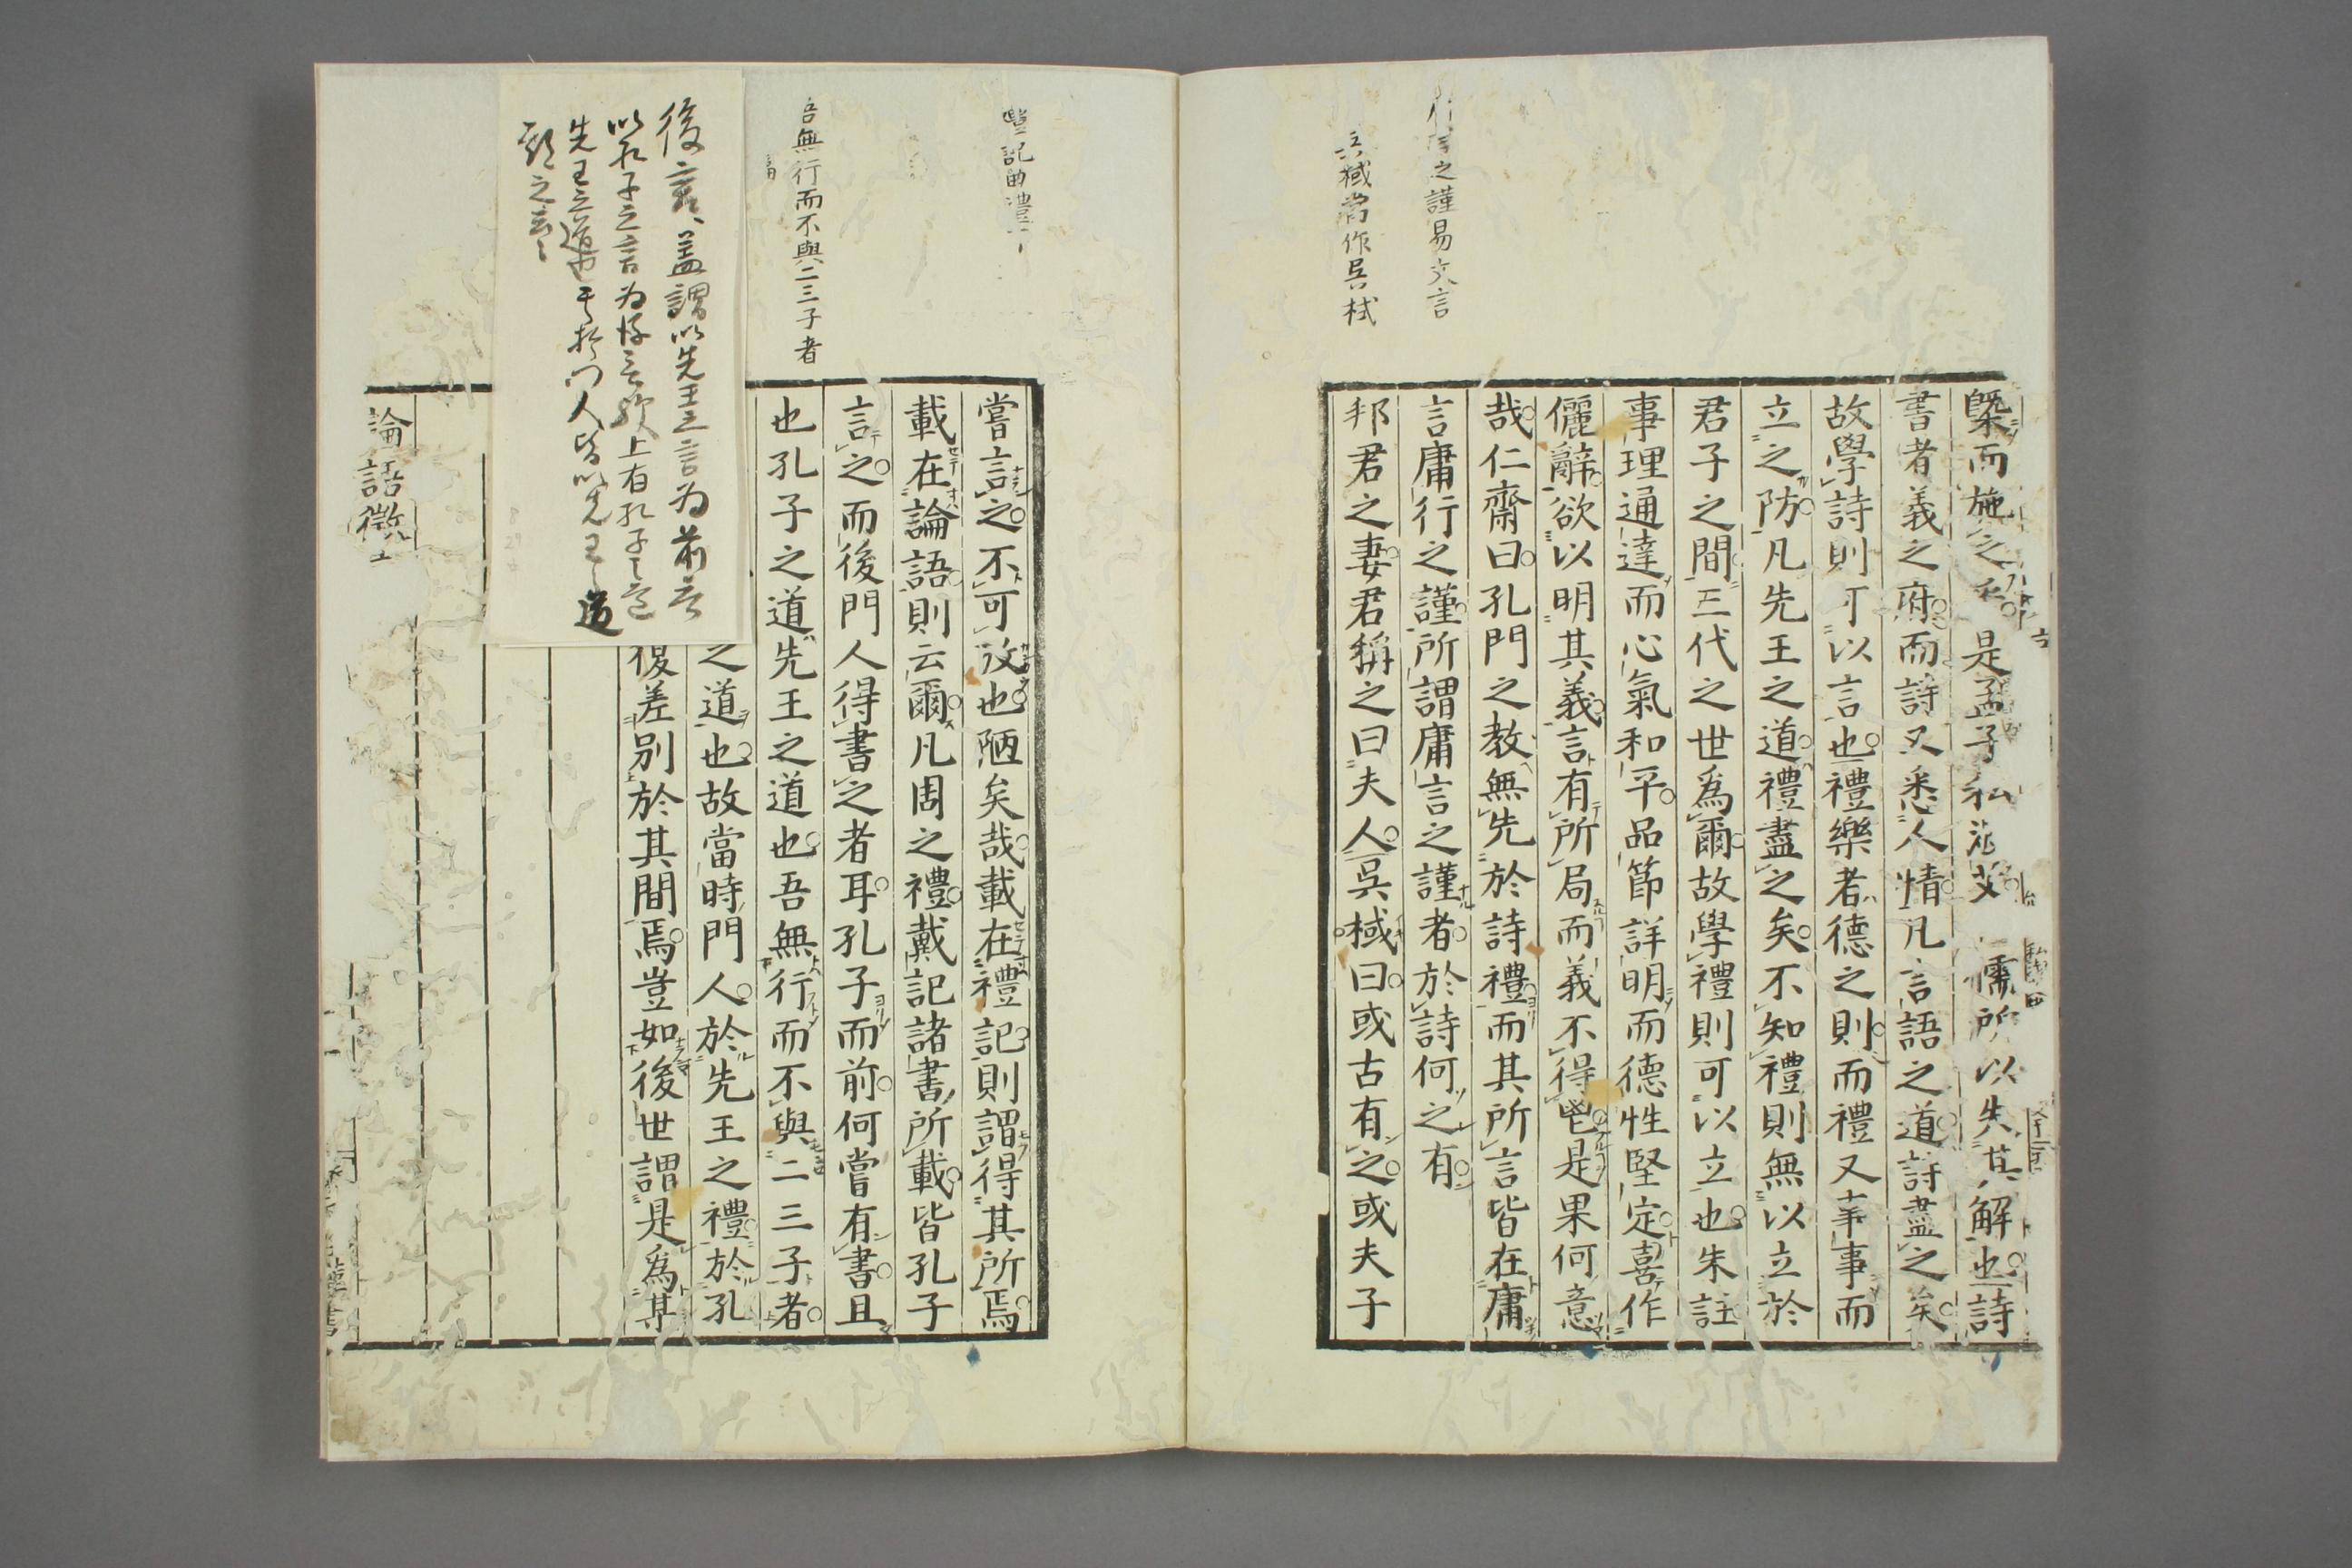 行信之謹易文言
吳棫當作吳棫
槩而施之
是孟子私淑艾
儒所以失其解也詩
書者義之府而詩又悉人情凡言語之道詩盡之矣
故學詩則可以言也禮樂者德之則而禮又事事而
立之防凡先王之道禮盡之矣不知禮則無以立於
君子之間三代之世爲爾故學禮則可以立也朱註
事理通達而心氣和平品節詳明而德性堅定喜作
儷辭欲以明其義言有所局而義不得鬯是果何意
哉仁齋曰孔門之教無先於詩禮而其所言皆在庸
言庸行之謹所謂庸言之謹者於詩何之有
邦君之妻君稱之曰夫人吳棫曰或古有之或夫子
禮記曲禮下
吾無行而不與二三子者
嘗言之不可攷也陋矣哉載在禮記則謂得其所焉
載在論語則云爾凡周之禮戴記諸書所載皆孔子
言之而後門人得書之者耳孔子而前何嘗有書且
也孔子之道先王之道也吾無行而不與二三子者
之道也故當時門人於先王之禮於孔
復差別於其間焉豈如後世謂是爲某
後言蓋謂以先王之言为前言
以孔子之言为後言歟上有孔子之言
先王之道也下於門人皆以先王之道
之言
論語徵